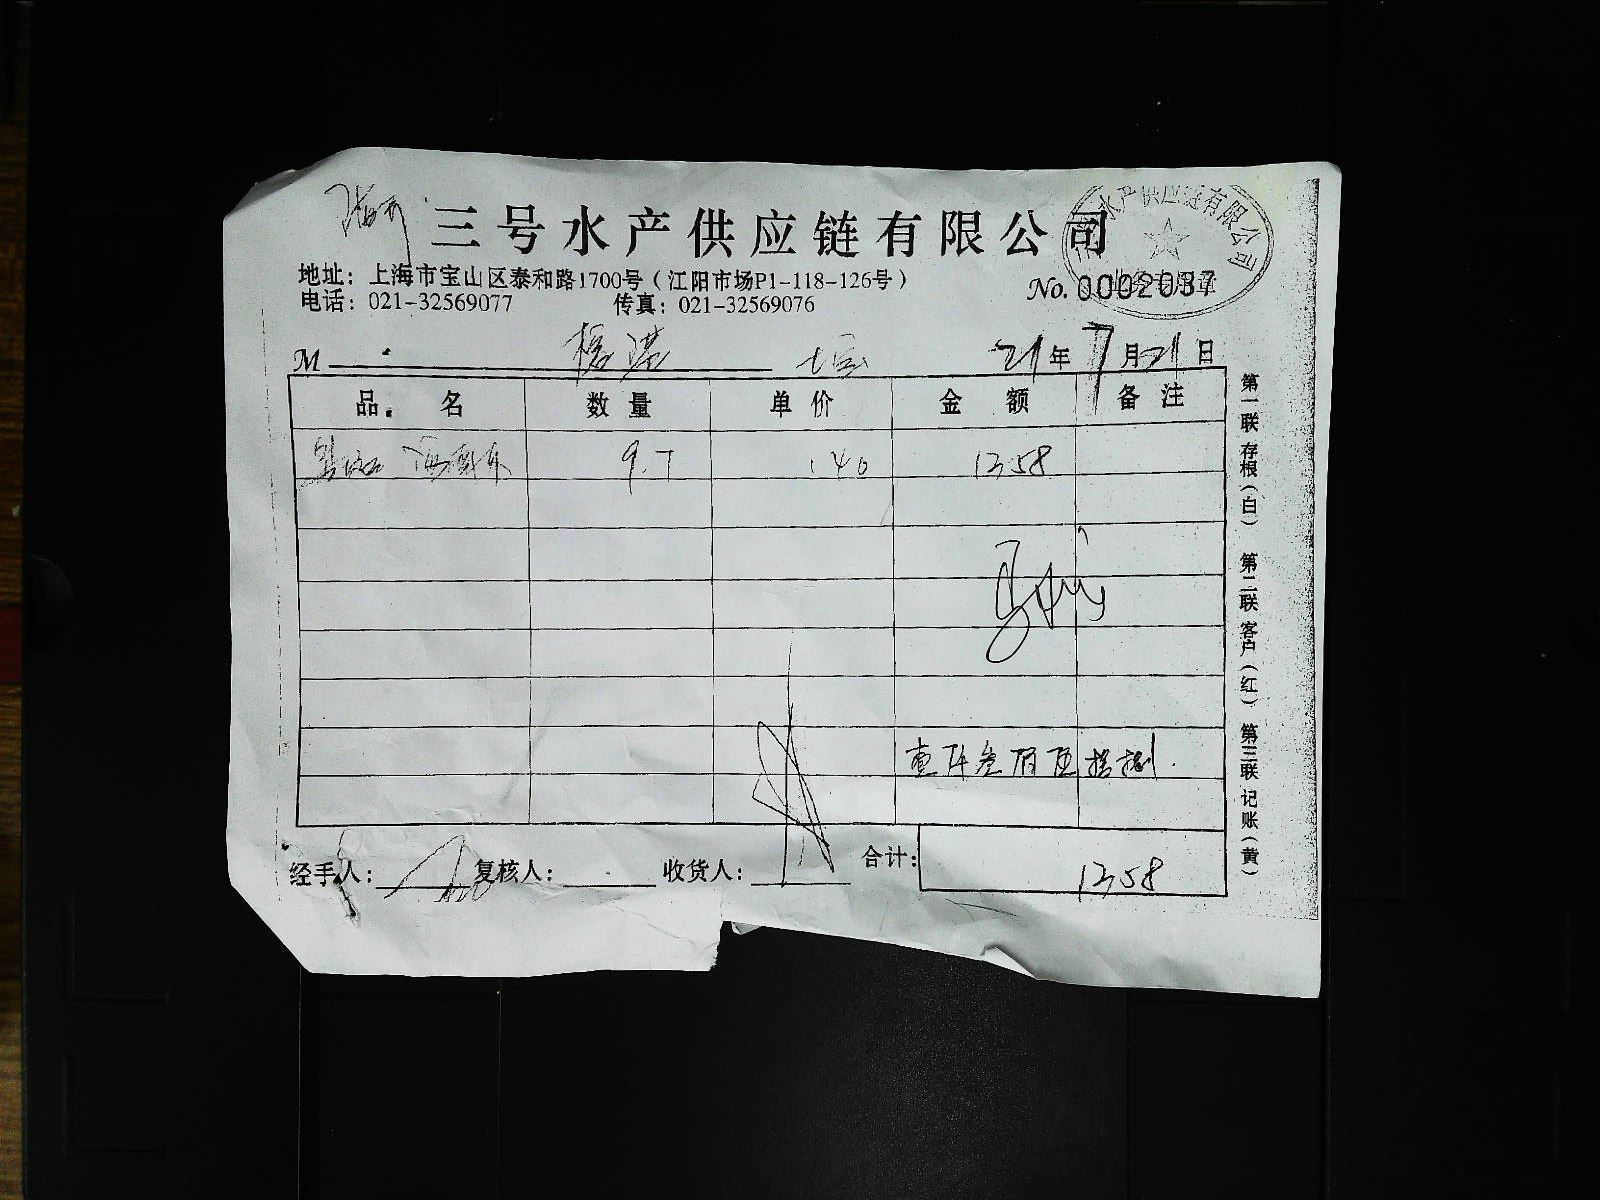 三号水产供应链有限公司
水产供应链有限公司
地址：上海市宝山区泰和路1700号（江阳市场P1-118-126号）
No. 0002037
电话：021-32569077 传真：021-32569076
M 21年7月21日
品名 数量 单价 金额 备注
9.7 140 1358
壹仟叁佰伍拾捌
经手人： 复核人： 收货人： 合计：1358
第一联 存根（白） 第二联 客户（红） 第三联 记账（黄）